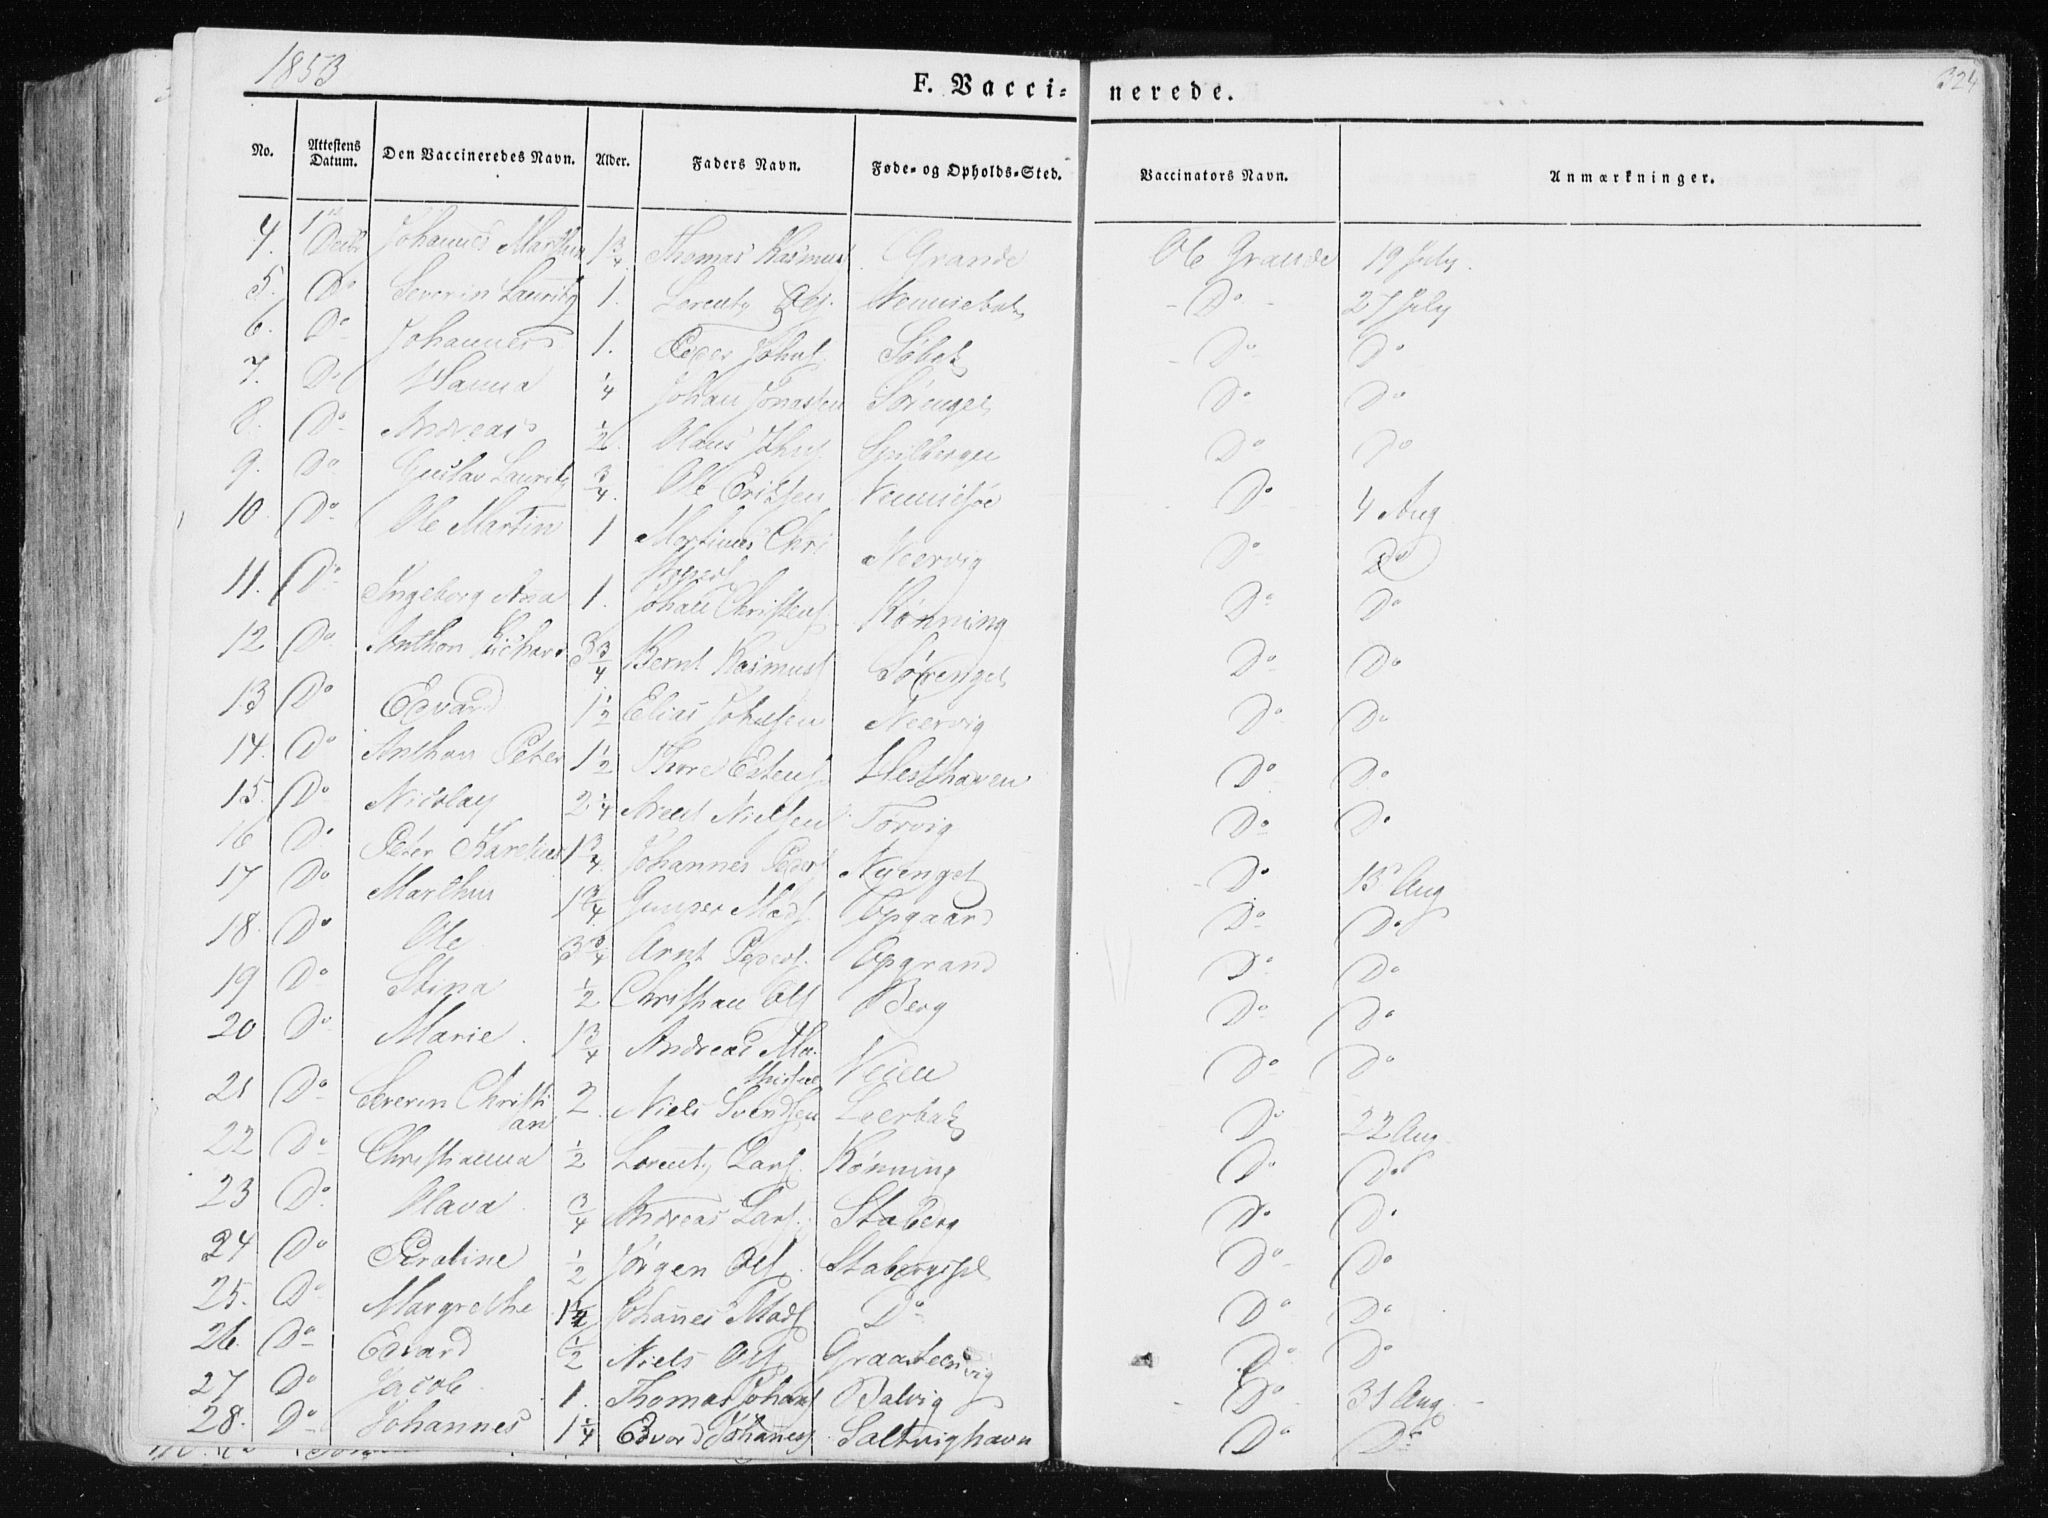 1853
F. Vacci- nerede.
324
No. Attestens Datum. Den Vaccineredes Navn. Alder. Faders Navn. Føde- og Opholds-Sted. Vaccinators Navn. Anmærkninger.
4. 1 Decbr Johannes Marthin 1 3/4 Thomas Rasmus Grande Ol Grande 19 July.
5. Do Severin Lauritz 1. Lorentz Ols. Do 27 July
6. Do Johannes 1. Peder Johns. Søbak Do Do
7. Do Hanna 1/4 Johan Jonassen Sørenget Do Do
8. Do Andreas 1/2 Olaus Johns. Do Do
9. Do Gustav Lauritz 3/4. Ole Eriksen Do 4 Aug
10. Do Ole Martin 1 Martinus Chri Neervig Do Do
11. Do Ingeborg Ana 1. Johan Christens Rønning Do Do
12 Do Anthon Richard 3 3/4 Bernt Rasmuss Sørenget Do Do
13 Do Edvard 1 1/2 Elias Johnsen Neervig Do Do
14. Do Anthon Peter 1 1/2 Thore Estens. Hesthaven Do Do
15. Do Nicolay 2 1/4 Arent Nielsen Torvig Do Do
16 Do Peter Karelius 1 3/4 Johannes Peders Nyenget Do 13 Aug
17 Do Marthin 1 3/4 Gunder Mads. Opgaard Do Do
18. Do Ole 3 3/4 Arnt Peders. Opgrand Do Do
19 Do Stina 1/2 Christian Ols Berg Do Do
20 Do Marie. 1 3/4 Andreas Ma- Do Do
thisen Veien
21 Do Severin Christi 2. Niels Svendsen Leerbak Do 22 Aug.
an
22 Do Christianna 1/2 Lorentz Lars. Rønning Do Do
23 Do Olava 3/4 Andreas Lars. Staberg Do Do
24 Do Peroline 1/2 Jørgen Ols. Do Do
25. Do Margrethe 1 1/2 Johanes Mads Do Do Do
26. Do Edvard 1/2 Niels Ols Graasteensvig Do Do
27 Do Jacob 1. Thomas Johans Balvig Do 31 Aug
28. Do Johannes 1 1/4 Edvard Johaness. Saltvighavn Do Do